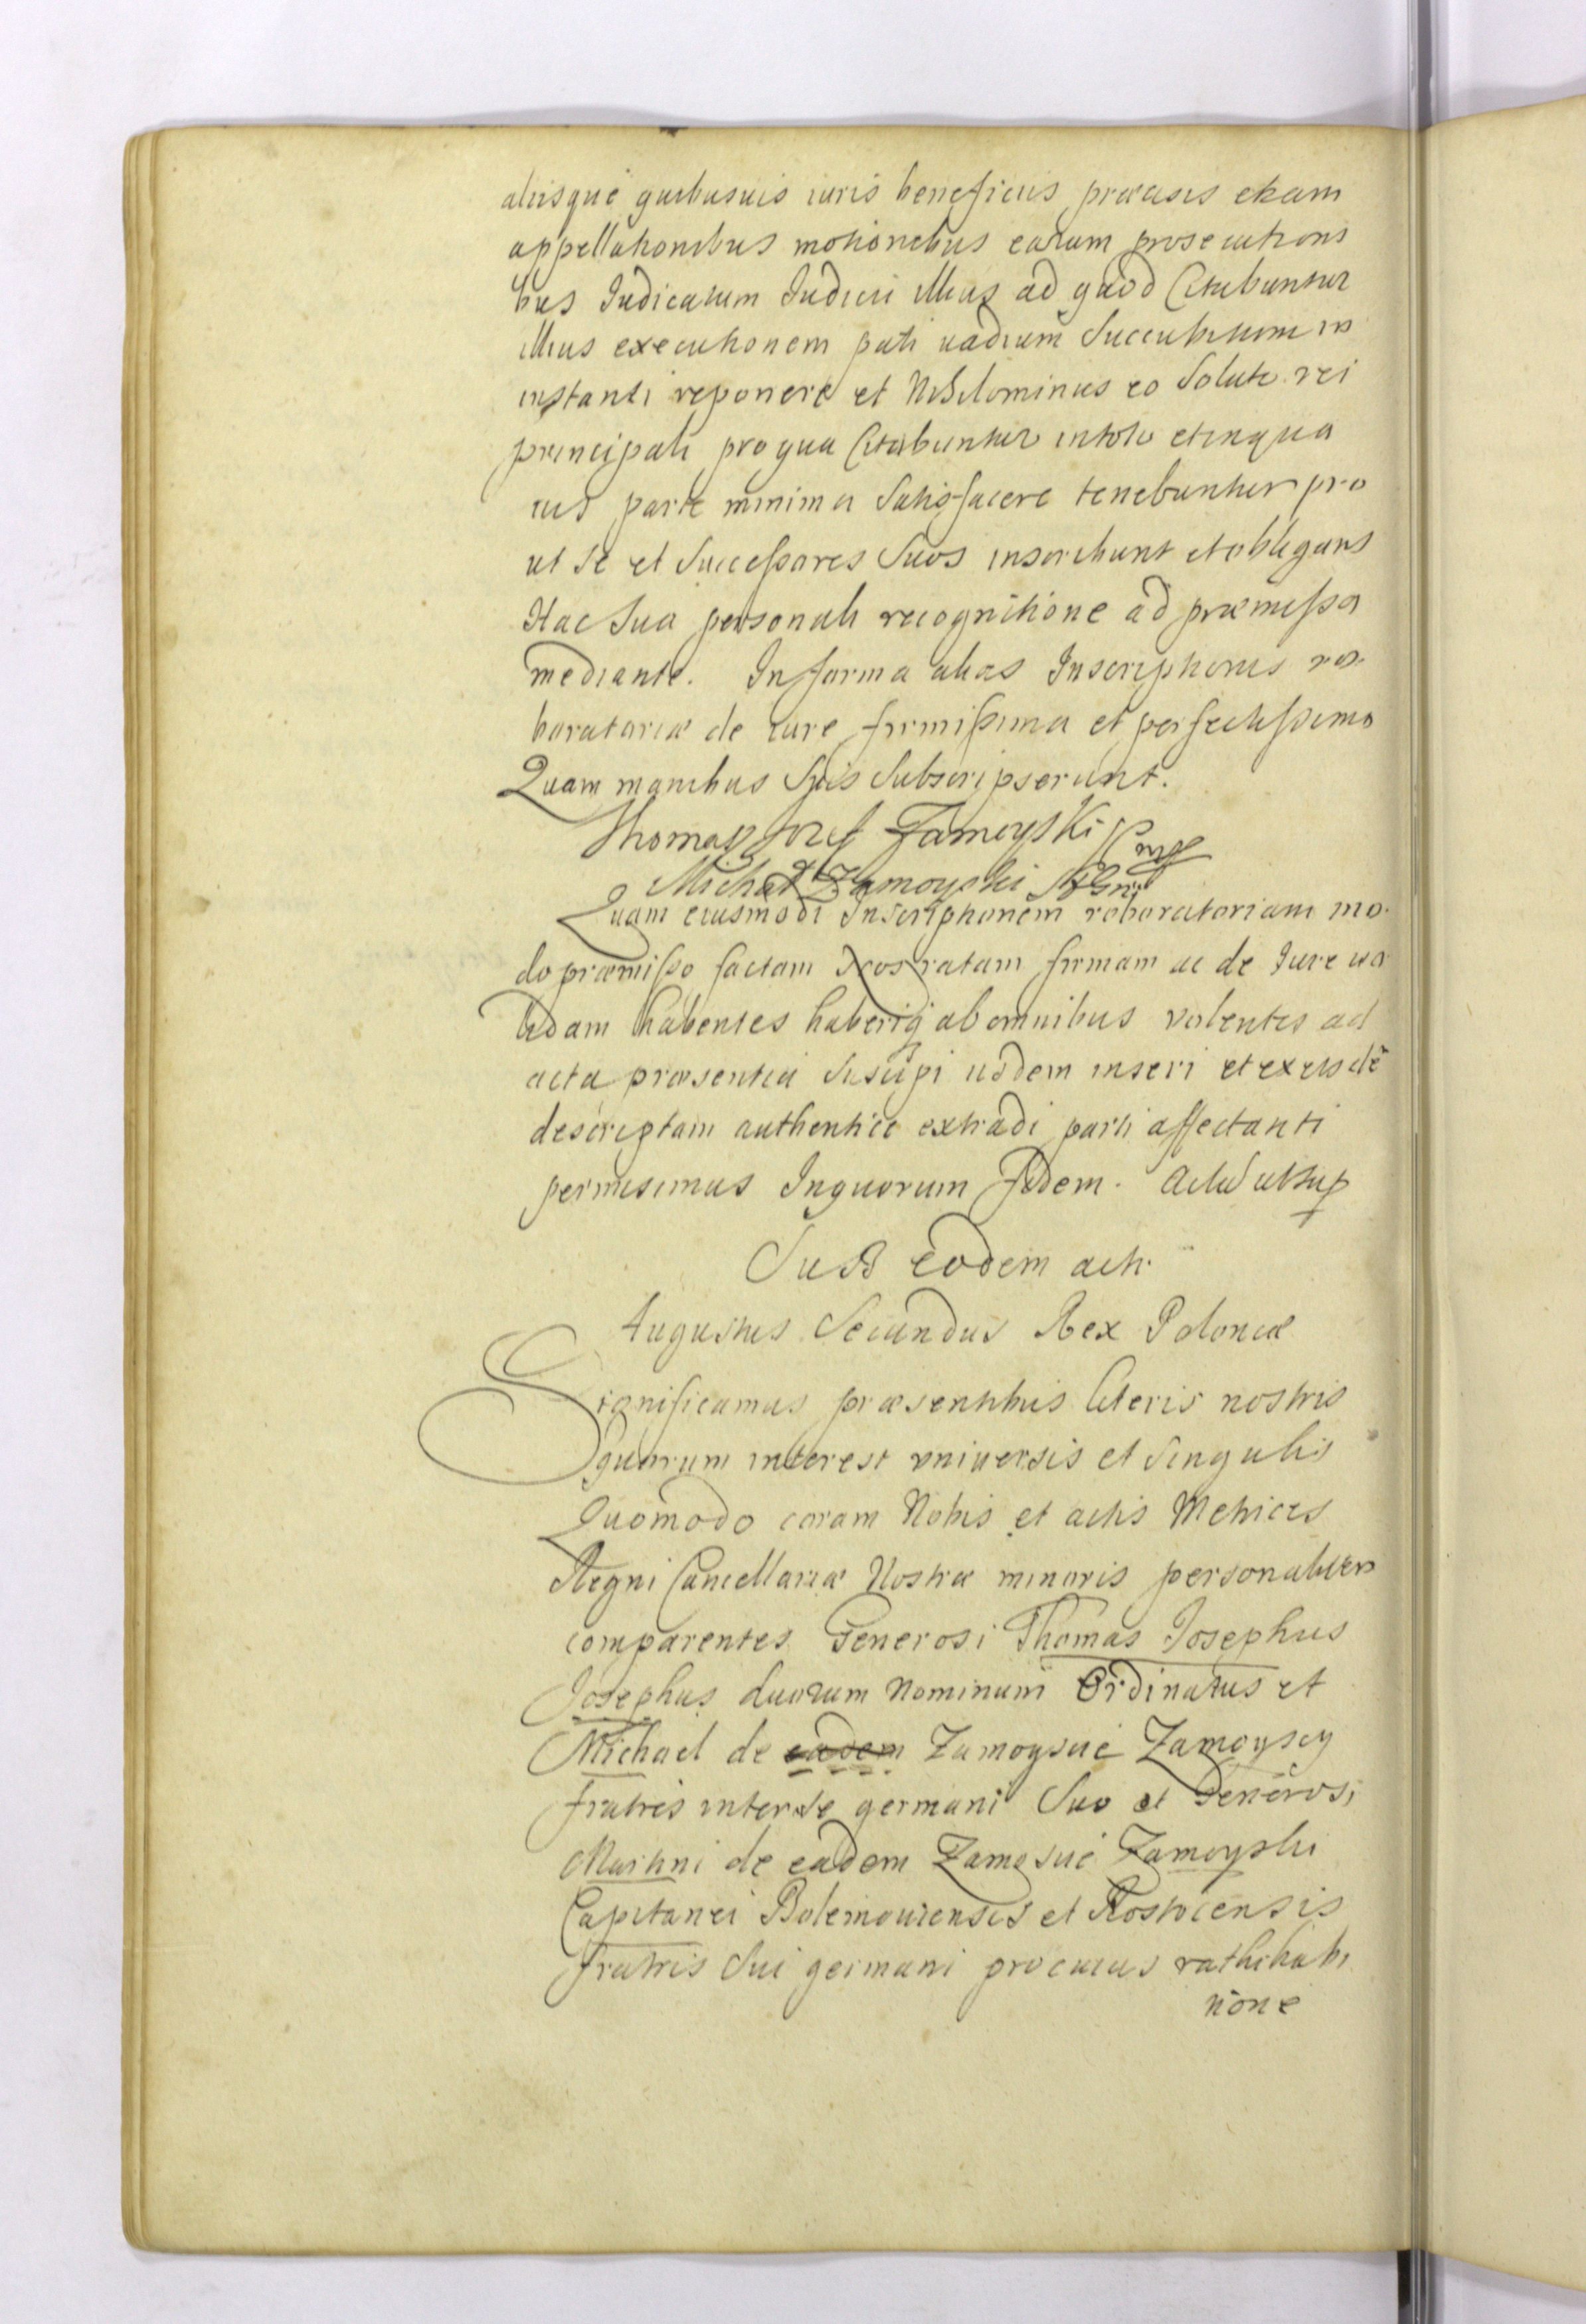 aliisque quibusuis iuris beneficiis praecisis etiam
appellationibus motionibus earum prosecutioni
bus Iudicatum Iudicii illius ad quod Citabuntur
illius executionem pati uadium Succubitum in
instanti reponere et Nihilominus eo Soluto rei
principali pro qua Citabuntur in toto et in qua
uis parte minima Satisfacere tenebuntur pro
ut Se et Successores Suos inscribunt et obligant
Hac Sua personali recognitione ad praemissa
mediante. In forma alias Inscriptionis ro
boratoriae de iure firmissima et perfectissima
Quam manibus Suis Subscripserunt.
Thomas Jozef Zamoyski
Michał Zamoyski
Quam eiusmodi Inscriptionem roboratoriam mo
do praemisso factam Nos ratam firmam ac de Iure ua
lidam habentes haberiq ab omnibus volentes ad
acta praesentia Suscipi iisdem inseri et ex eisdē
descriptam authentice extradi parti affectanti
permisimus In quorum fidem. Actū ut sup
Sub eodem acti.
Augustus Secundus Rex Poloniae
Significamus praesentibus literis nostris
quorum interest vniuersis et Singulis
Quomodo coram Nobis et actis Metrices
Regni Cancellariae Nostrae minoris personaliter
comparentes Generosi Thomas Josephus
Josephus duorum Nominum Ordinatus et
Michael de eadem Zamoyscie Zamoyscy
fratres inter Se germani Suo et Generosi
Martini de eadem Zamoscie Zamoyski
Capitanei Bolemouiensis et Rostocensis
fratris Sui germani pro cuius rathihabi
tione